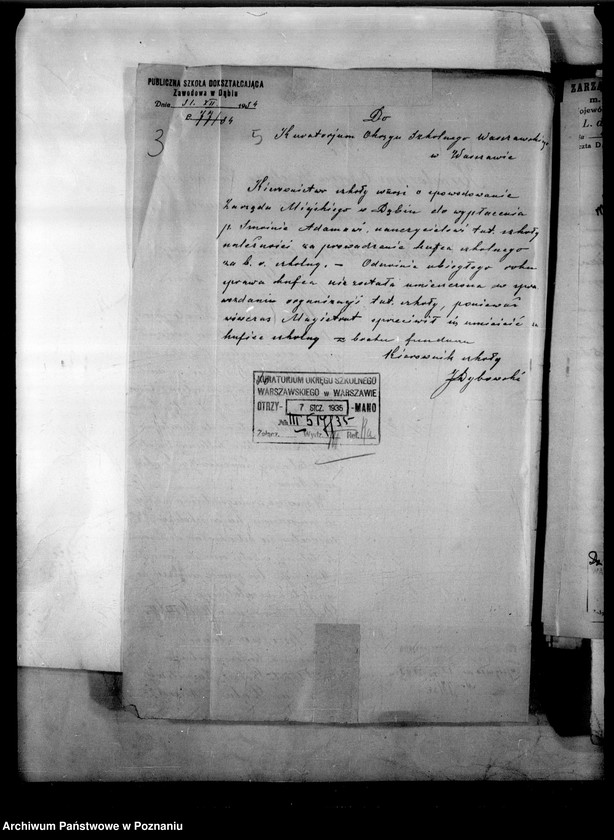 PUBLICZNA SZKOŁA DOKSZTAŁCAJĄCA
Zawodowa w Dąbiu
Dnia 31. XII 1934
L 77/34
3
Do
5 Kuratorjum Okręgu Szkolnego Warszawskiego
w Warszawie
Kierownictwo szkoły wnosi o spowodowanie
Zarządu Miejskiego w Dąbiu do wypłacenia
p. Adamowi, nauczycielowi tut. szkoły
należności za prowadzenie hufca szkolnego
za b. r. szkolny. — Odnośnie ubiegłego roku
sprawa hufca nie została umieszczona w spra
wozdaniu organizacji tut. szkoły, ponieważ
wówczas Magistrat sprzeciwił się umieścić
hufiec szkolny z braku funduszu
Kierownik szkoły
JDybowski
KURATORIUM OKRĘGU SZKOLNEGO
WARSZAWSKIEGO w WARSZAWIE
OTRZY- 7 STCZ. 1935 -MANO
№ III 517/35
Załącz. Wydz. Ref.
ZARZĄ
m.
Wojewó
L. d
czta D
Archiwum Państwowe w Poznaniu